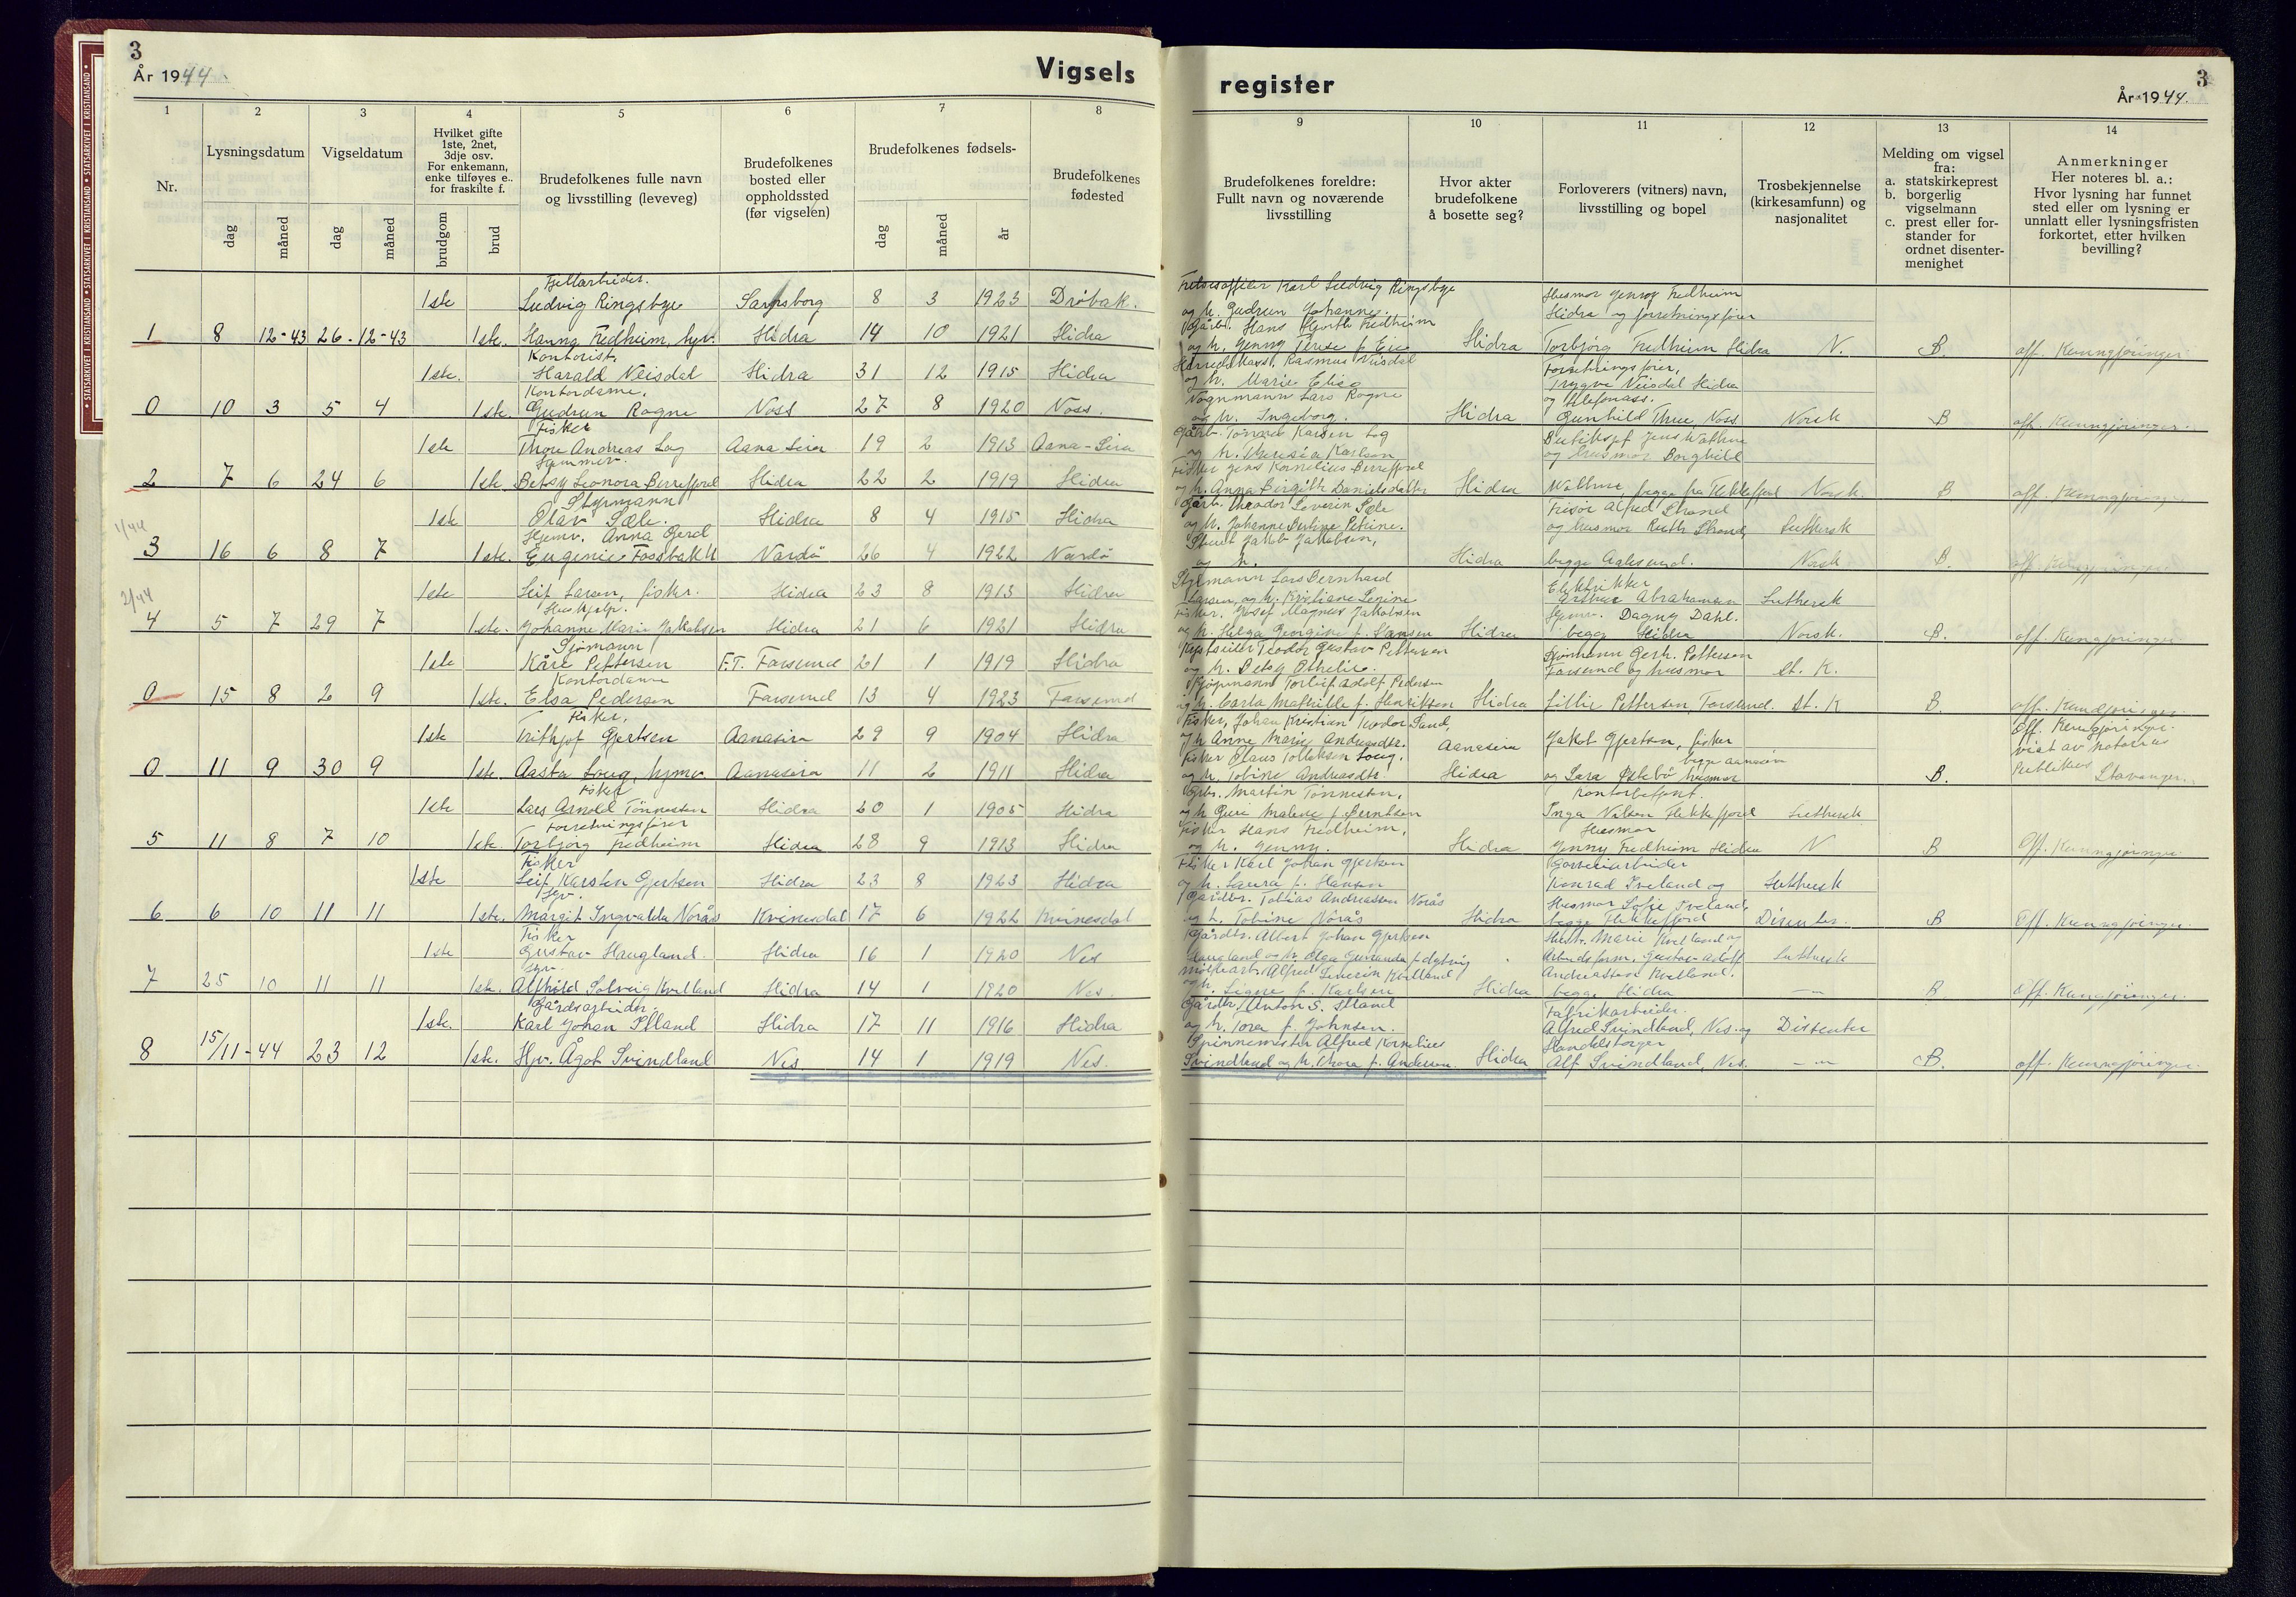 3
År 1944.
Vigsels
register
3
År 1944.
1 2 3 4 5 6 7 8
9 10 11 12 13 14
Nr.
Lysningsdatum
dag
måned
Vigseldatum
dag
måned
Hvilket gifte
1ste, 2net,
3dje osv.
For enkemann,
enke tilføyes e.
for fraskilte f.
brudgom
brud
Brudefolkenes fulle navn
og livsstilling (leveveg)
Brudefolkenes
bosted eller
oppholdssted
(før vigselen)
Brudefolkenes fødsels-
dag
måned
år
Brudefolkenes
fødested
Brudefolkenes foreldre:
Fullt navn og noværende
livsstilling
Hvor akter
brudefolkene
å bosette seg?
Forloverers (vitners) navn,
livsstilling og bopel
Trosbekjennelse
(kirkesamfunn) og
nasjonalitet
Melding om vigsel
fra:
a. statskirkeprest
b. borgerlig
vigselmann
c. prest eller for-
stander for
ordnet disenter-
menighet
Anmerkninger
Her noteres bl. a.:
Hvor lysning har funnet
sted eller om lysning er
unnlatt eller lysningsfristen
forkortet, etter hvilken
bevilling?
Fjellarbeider.
1ste Ludvig Ringsbye Sarpsborg 8 3 1923 Drøbak.
Karl Ludvig Ringsbye
og h. Gudrun Johanne.
Husmor Jenny Fredheim
Hidra og forretningsfører
1 8 12-43 26-12-43 1ste. Hanna Fredheim, hjv. Hidra 14 10 1921 Hidra
Gårb. Hans Hjorth Fredheim
og h. Jenny Terese f. Eie Hidra Torbjørg Fredheim Hidra N. B. off. Kunngjøringer.
Kontorist.
1ste. Harald Veisdal Hidra 31 12 1915 Hidra
Herredskass. Rasmus Veisdal
og h. Marie Elise
Forretningsfører,
Trygve Veisdal Hidra
Kontordame.
0 10 3 5 4 1ste. Gudrun Rogne Voss 27 8 1920 Voss.
Vognmann Lars Rogne
og h. Ingeborg. Hidra
og telefonass.
Gunhild Thue, Voss Norsk B off. Kunngjøringer.
Fisker
1ste Thore Andreas Log Aana Sira 19 2 1913 Aana-Sira
Gårb. Tønnes Karsen Log
og h. Theresia Karlsen
Jens Wathne
og husmor Borghild
Hjemmev.
2 7 6 24 6 1ste Betsy Leonora Berrefjord Hidra 22 2 1919 Hidra
Fisker Jens Kornelius Berrefjord
og h. Anna Birgith Danielsdatter Hidra Wathne, begge fra Flekkefjord Norsk. B off. Kunngjøringer
Styrmann
1ste Olav Sæle. Hidra 8 4 1915 Hidra
Gårb. Theodor Severin Sæle
og h. Johanne Bertine Petrine.
Frisør Alfred Strand
og husmor Ruth Strand, Luthersk
1/44
Hjemv. Anna Gerd
3 16 6 8 7 1ste. Eugenie Fossbakk Vardö 26 4 1922 Vardö
Jakob Jakobsen,
og h. Hidra begge Aalesund. Norsk B. off. Kunngjøringer
1ste Leif Larsen, fisker. Hidra 23 8 1913 Hidra
Styrmann Lars Bernhard
Larsen, og h. Kristiane Severine
Elektriker
Arthur Abrahamsen Luthersk
2/44
Hushjelp.
4 5 7 29 7 1ste. Johanne Marie Jakobsen Hidra 21 6 1921 Hidra
Fisker. Josef Magnus Jakobsen
og h. Helga Georgine f. Hansen Hidra
Hjemv. Dagny Dahl.
begge Hidra Norsk. B. off. Kunngjøringer
Sjømann
1ste Kåre Pettersen F.T. Farsund 21 1 1919 Hidra
Teodor Gustav Pettersen
og h. Betsy Othelie.
Sjømann Gerh. Pettersen
Farsund og husmor St. K.
Kontordame
0 15 8 2 9 1ste. Elsa Pedersen Farsund 13 4 1923 Farsund
Kjøpmann Torleif Adolf Pedersen
og h. Carla Mathilde f. Henriksen Hidra Lillie Pettersen, Farsund. St. K B off. Kunngjøringer
Fisker.
1ste Trithjof Gjertsen Aanasira 29 9 1904 Hidra
Fisker, Johan Kristian Teodor Sand,
og h Anne Marie Andreasdtr. Aanasira Jakob Gjertsen, fisker
Off. Kunngjøringer
vist av notarius
Publikus Stavanger.
0 11 9 30 9 1ste. Aasta Loug, hjmv. Aanasira 11 2 1911 Hidra
Fisker Olaus Tollaksen Loug.
og h. Tobine Andreasdtr. Hidra
begge Aanasira
og Sara Østebø husmor B.
Fisker
1ste Lars Arnold Tønnessen Hidra 20 1 1905 Hidra
Grb. Martin Tønnessen,
og h Guri Malene f. Berntsen
Kontorbetjent.
Inga Nilsen Flekkefjord Luthersk
Forretningsfører
5 11 8 7 10 1ste. Torbjørg Fredheim Hidra 28 9 1913 Hidra
Fisker Hans Fredheim,
og h. Jenny. Hidra
Husmor
Jenny Fredheim Hidra N B Off. Kunngjøringer
Fisker
1ste Leif Karsten Gjertsen Hidra 23 8 1923 Hidra
Fisker Karl Johan Gjertsen
og h. Laura f. Hansen
Garveriarbeider
Konrad Iveland og Luthersk
Hjv.
6 6 10 11 11 1ste. Margit Ingvalda Norås Kvinesdal 17 6 1922 Kvinesdal
Gårdbr. Tobias Andreassen Norås
og h. Tobine Norås Hidra
Husmor Sofie Iveland,
begge Flekkefjord Disenter. B Off. Kunngjøringer.
Fisker
1ste Gustav Haugland. Hidra 16 1 1920 Nes
Gårdbr. Albert Johan Gjertsen
Haugland og h. Olga
Marie Kvelland og
Arbeidsform. Gustav Adolf Luthersk
Hjv.
7 25 10 11 11 1ste. Alfhild Solveig Kvelland Hidra 14 1 1920 Nes.
Alfred Severin Kvelland
og h. Signe f. Karlsen Hidra
Andreassen Kvelland.
begge Hidra -"- B Off. Kunngjøringer.
Gårdsarbeider.
1ste. Karl Johan Itland Hidra 17 11 1916 Hidra
Gårdbr. Anton S. Itland
og h. Tora f. Johnsen.
Fabrikarbeider.
Alfred Svindland, Nes. og Dissenter
8 15/11-44 23 12 1ste. Hjv. Ågot Svindland Nes. 14 1 1919 Nes.
Spinnemester Alfred Kornelius
Svindland og h. Thora f. Andersen. Hidra
Handelsborger
Alf Svindland, Nes. -"- B. off. Kunngjøringer.
• STATSARKIVET I KRISTIANSAND • STATSARKIVET I KRISTIANSAND • STATSARKIVET I KRISTIANSAND